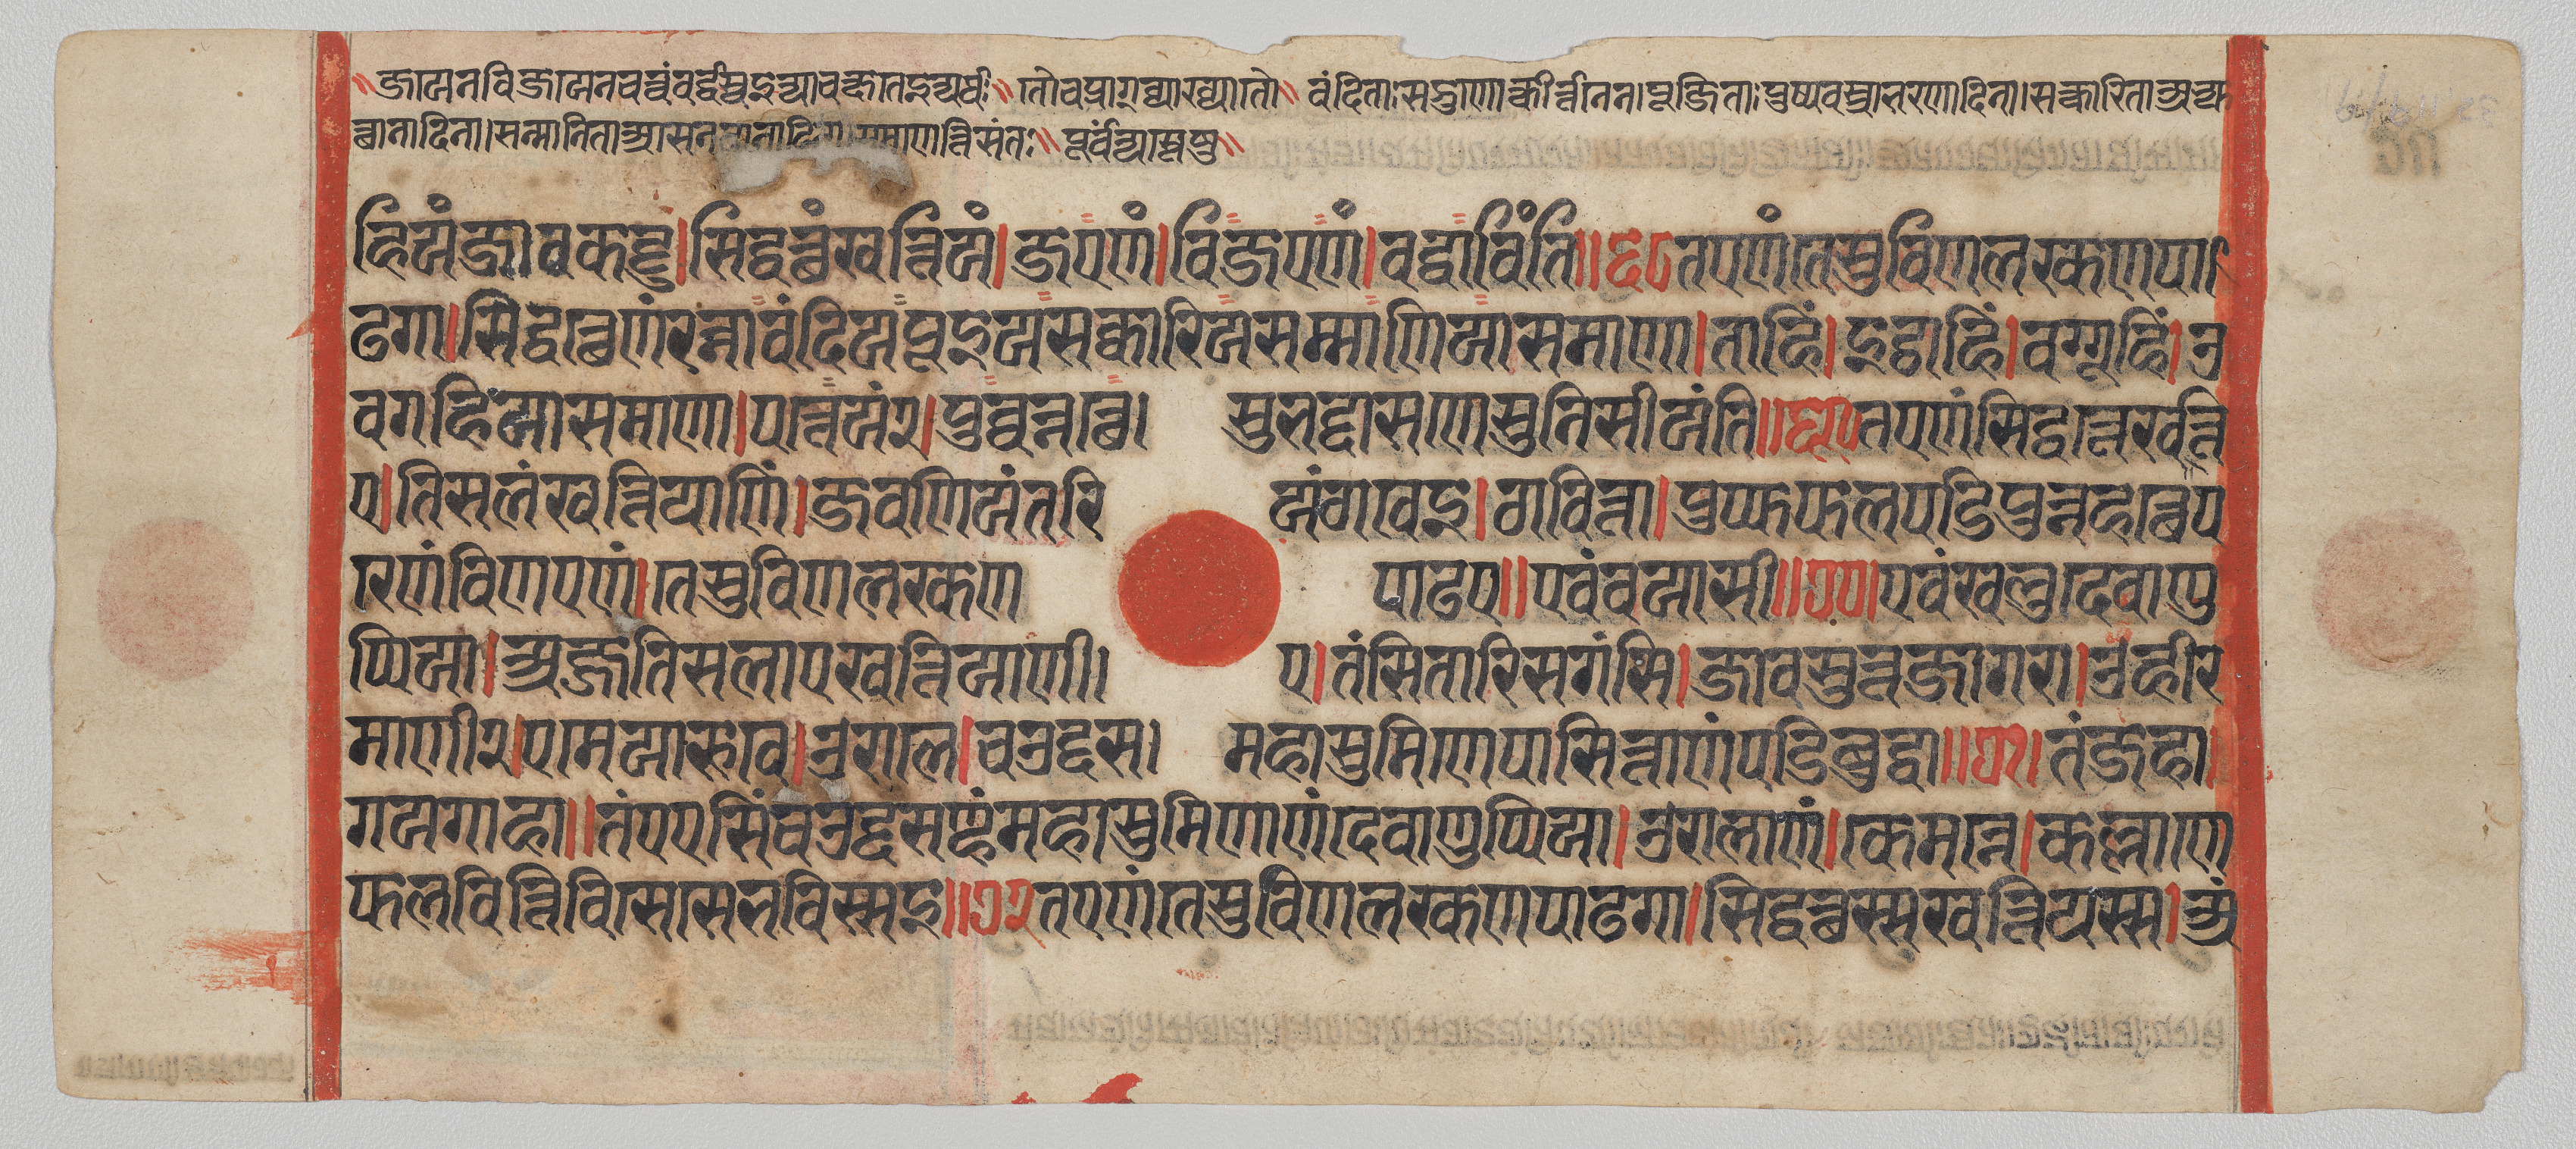 ॥जयेन विजयेन च त्वं वर्द्धस्व इत्याचक्षत इत्यर्थः॥ तौ च प्राग्व्याख्यातौ॥ वंदिताः सद्गुणोत्कीर्त्तनेन। पूजिताः पुष्पवस्त्राभरणादिना। सत्कारिता अभ्यु
त्थानादिना। सन्मानिता आसनदानादिना। समाणत्ति संतः॥ पूर्वं न्यस्तेषु॥
हियं जाव कट्टु।सिद्धत्थं खत्तियं।जएणं।विजएणं।वद्धाविंति॥६८ तएणं ते सुविणलक्खणपा
ढगा।सिद्धत्थेणं रन्ना वंदियपूइयसक्कारियसम्माणिया समाणा।ताहिं।इट्ठाहिं।वग्गूहिं।उ
वगहिंया समाणा।पत्तेयं२।पुव्वन्नत्थे। सु भद्दासणेसु निसीयंति॥६९ तएणं सिद्धत्थे खत्ति
ए।तिसलं खत्तियाणिं।जवणियंतरि यं ठावेइ।ठावित्ता।पुप्फफलपडिपुन्नहत्थे प
रेणं विणएणं। ते सुविणलक्खण पाढए॥एवं वयासी॥७०।एवं खलु देवाणु
प्पिया।अज्ज तिसलाए खत्तियाणी। ए।तंसि तारिसगंसि।जाव सुत्तजागरा।उहीर
माणी२।एमेयारूवे।उराले।चउद्दस। महासुमिणे पासित्ताणं पडिबुद्धा॥७१।तंजहा।
गयगाहा॥तं एएसिं चउद्दसण्हं महासुमिणाणं देवाणुप्पिया।उरालाणं।के मन्ने।कल्लाणे
फलवित्तिविसेसे भविस्सइ॥७२ तएणं ते सुविणलक्खणपाढगा।सिद्धत्थस्स खत्तियस्स।अं